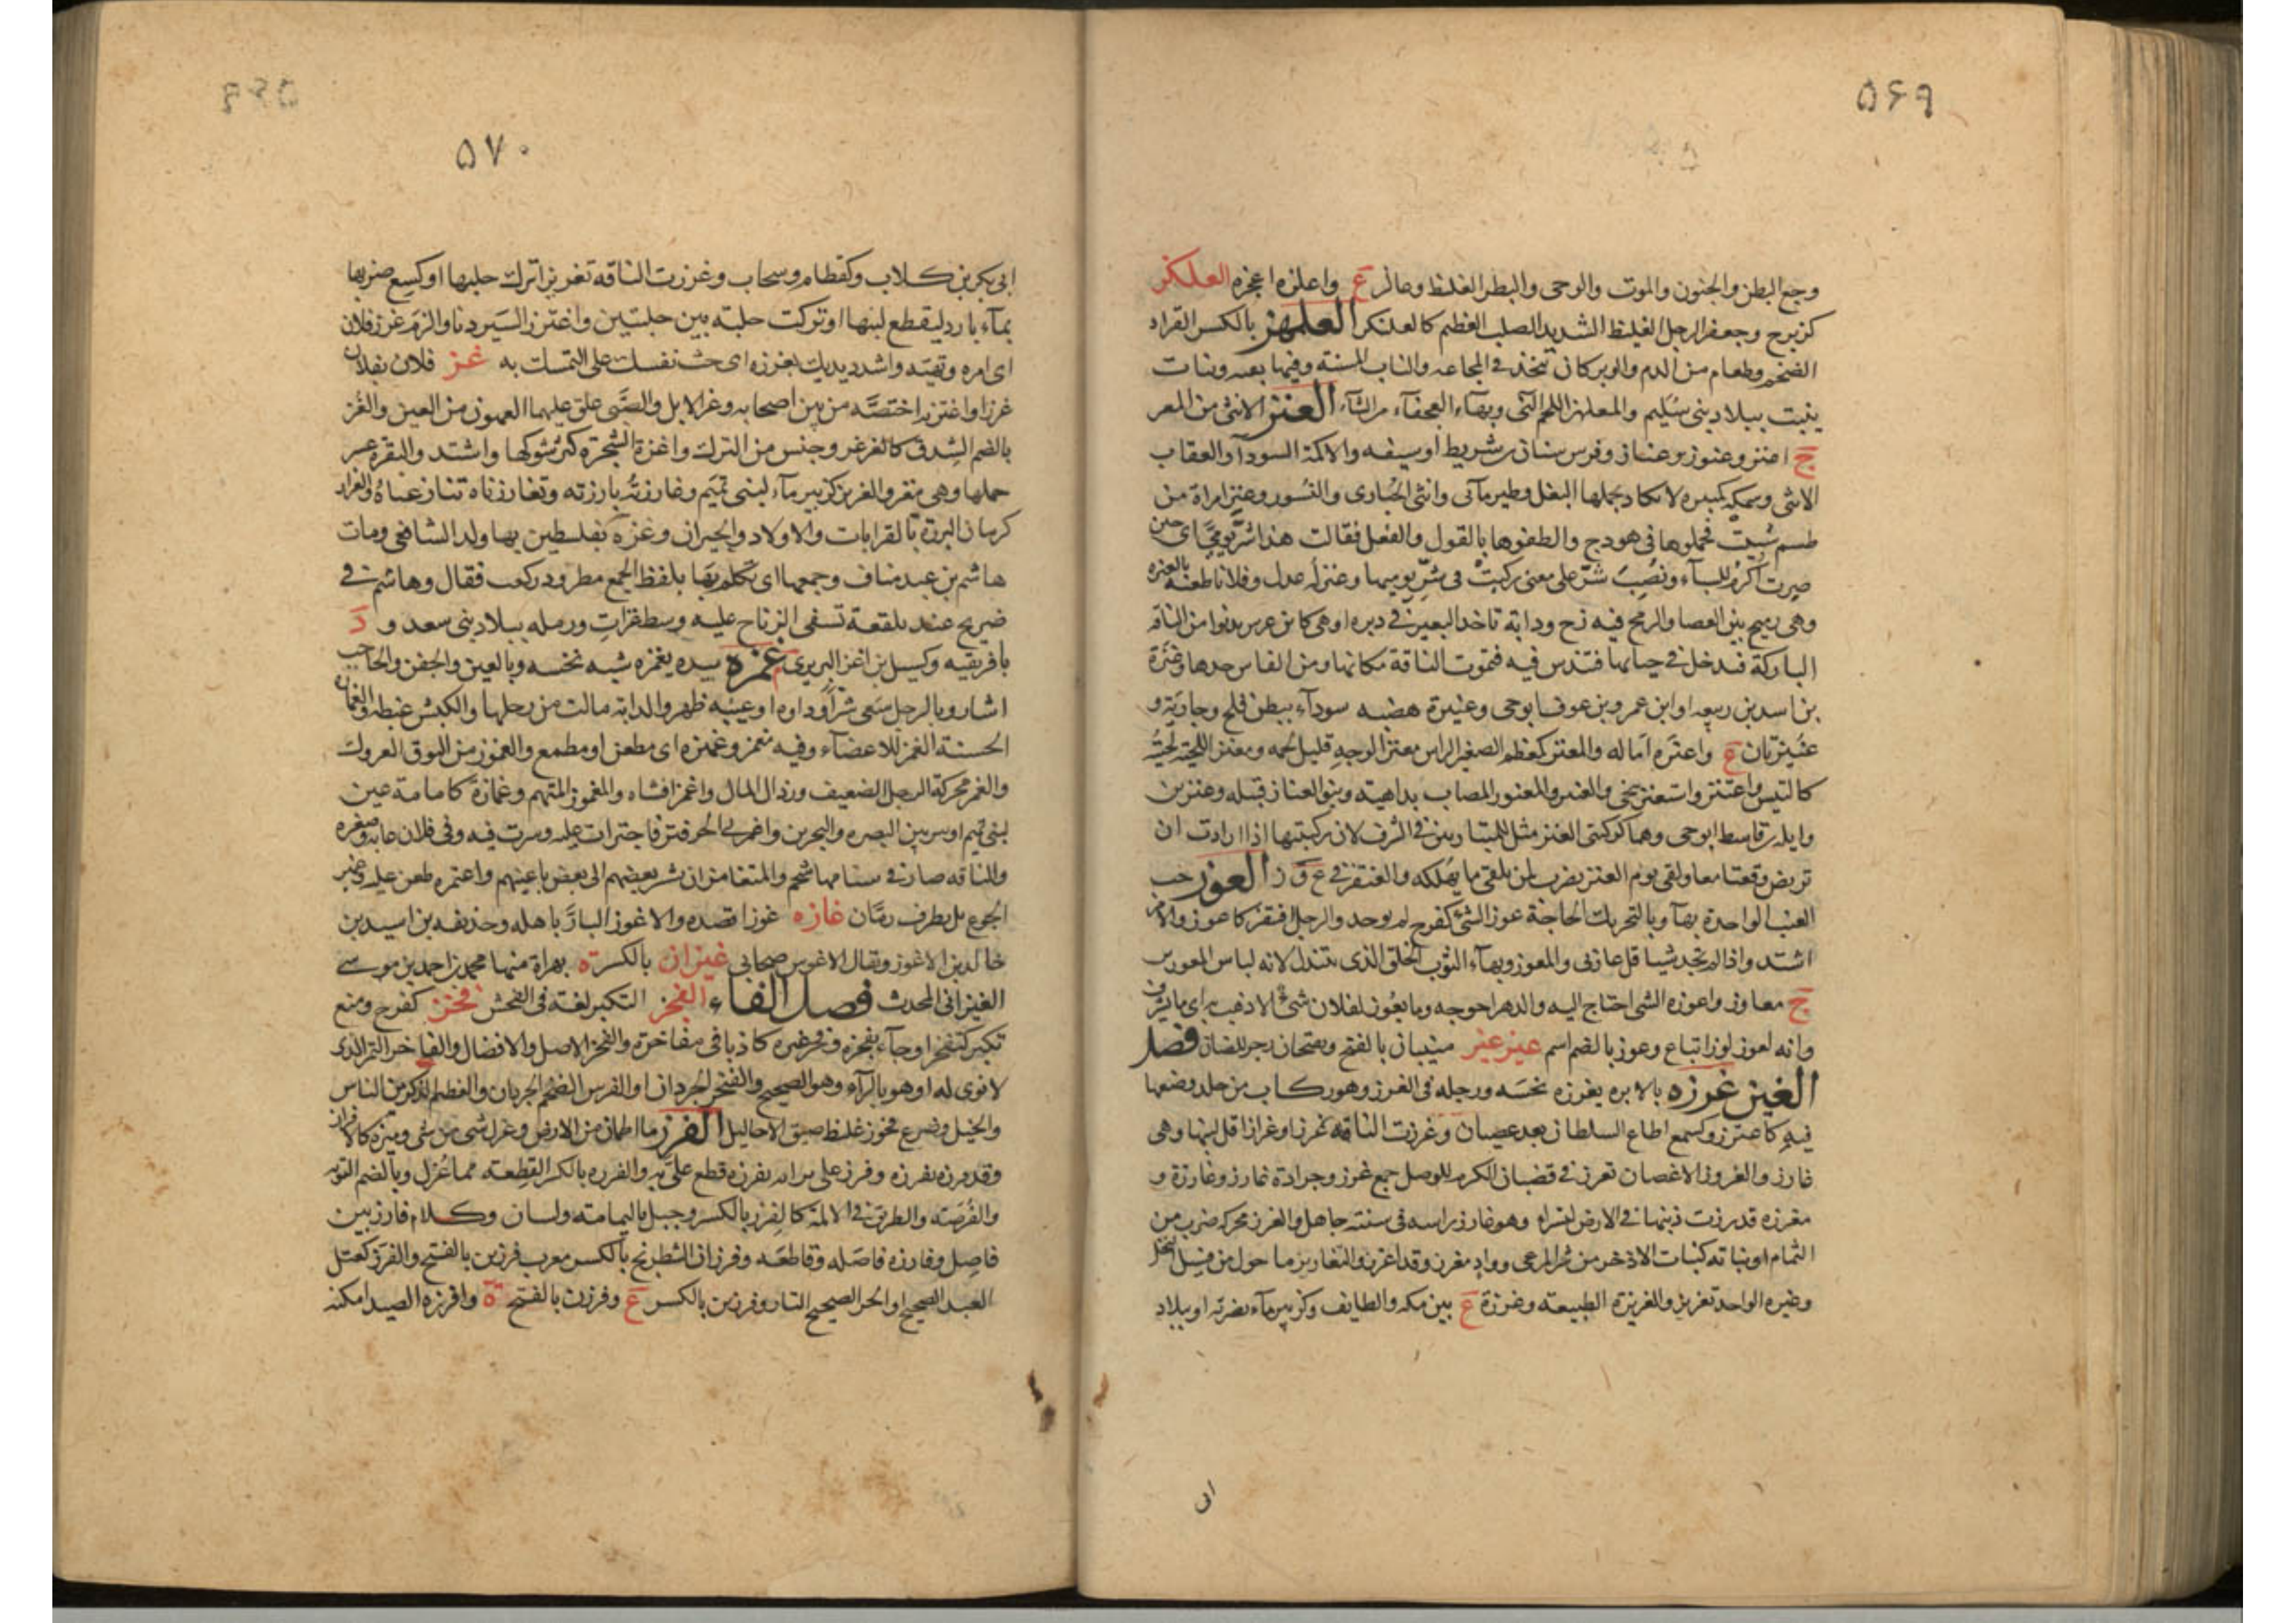 ۵۶۹
وجع البطن والجنون والموت والوحى والبطر الغلظ وعالز ع واعلزه اعجزه العلكز
كزبرج وجعفر الرجل الغليظ الشديد الصلب العظيم كالعلنكز العلهز بالكسر القراد
الضخم وطعام من الدم والوبر كان يتخذ في المجاعه والناب المسنة وفيها بقيه ونبات
ينبت ببلاد بني سليم والمعلهز اللحم الني وبهاء العجفاء من الشاء العنز الانثى من المعز
ج اعنز وعنوز وعناز وفرس سنان بن شريط او سيفه والاكمة السوداء والعقاب
الانثى وسمكه كبيره لا يكاد يحملها البغل وطير مائى وانثى الحبارى والنسور وعنز امراة من
طسم سبيت فحملوها في هودج والطفوها بالقول والفعل فقالت هذا شر يومي اى حين
صرت اكرم للسباء ونصب شر على معنى ركبت في شر يوميها وعنز له عدل وفلانا طعنه بالعنزه
وهى رميح بين العصا والرمح فيه زج ودابة تاخذ البعير في دبره او هى كابن عرس يدنوا من الناقة
الباركة فيدخل في حيائها فتندس فيه فتموت الناقة مكانها ومن الفاس حدها وعنزة
بن اسد بن ربيعه او ابن عمرو بن عوف ابو حى وعنيزة هضبه سوداء ببطن فلج وجارية و
عنيزتان ع واعنزه اماله والمعنز كمعظم الصغير الراس معنز الوجه قليل لحمه ومعنز اللحية لحيته
كالتيس واعتنز واستعنز تنحى والعنيز والمعنوز المصاب بداهيته وبنو العناز قبيله وعنز بن
وايل بن قاسط ابو حى وهما كركبتى العنز مثل للمتباريين في الشرف لان ركبتيها اذا ارادت ان
تربض وقعتا معا ولقى يوم العنز يضرب لمن يلقى ما يهلكه والعنقز في ع ق ز العوز حب
العنب الواحدة بهاء وبالتحريك الحاجة عوز الشئ كفرح لم يوجد والرجل افتقر كاعوز والامر
اشتد واذا لم تجد شيئا قل عازنى والمعوز وبهاء الثوب الخلق الذى يبتذل لانه لباس المعوزين
ج معاوز واعوزه الشئ احتاج اليه والدهر احوجه وما يعوز لفلان شئ الا ذهب به اى ما يشرف
وانه لعوز لوز اتباع وعوز بالضم اسم عيز عيز مبنيان بالفتح ويفتحان زجر للضان فصل
الغين غرزه بالابره يغرزه نخسه ورجله في الغرز وهو ركاب من جلد وضعها
فيه كاغترز وكسمع اطاع السلطان بعد عصيان وغرزت الناقه غرزا وغرازا قل لبنها وهى
غارز والغروز الاغصان تغرز في قضبان الكرم للوصل جمع غرز وجرادة غارز وغارزة و
مغرزه قد رزت ذنبها في الارض لتسرا وهو غارز راسه في سنته جاهل والغرز محركه ضرب من
الثمام او نباته كنبات الاذخر من شر المرعى وواد مغرز وقد اغرز والتغاريز ما حول من فسيل النخل
وغيره الواحد تغريز والغريزة الطبيعته وغرزة ع بين مكه والطايف وكزبير ماء بضرية او ببلاد
ابى
۵۷۰
ابى بكر بن كلاب وكقطام وسحاب وغرزت الناقه تغريزا ترك حلبها او كسع ضرعها
بماء بارد ليقطع لبنها او تركت حلبته بين حلبتين واغترز السير دنا والزم غرز فلان
اى امره ونهيه واشدد يديك بغرزه اى حث نفسك على التمسك به غز فلان بفلان
غززا واغتز به اختصه من بين اصحابه وغز الابل والصبى علق عليهما العهون من العين والغز
بالضم الشدق كالغزغز وجنس من الترك واغزت الشجرة كثر شوكها واشتد والبقرة عسر
حملها وهى مغز والغزيز كزبير ماء لبنى تميم وغاززته بارزته وتغاززناه تنازعناه والغزاز
كرمان البررة بالقرابات والاولاد والجيران وغزه بفلسطين بها ولد الشافعى ومات
هاشم بن عبد مناف وجمعها اى تكلم بها بلفظ الجمع مطرود بن كعب فقال وهاشم في
ضريح عند بلقعة تسفى الرياح عليه وسط غزات ورمله ببلاد بني سعد و د
بافريقيه وكسيل بن اغز البربرى غمزه بيده يغمزه شبه نخسه وبالعين والجفن والحاجب
اشار وبالرجل سعى شرا وداوه او عيبه ظهر والدابته مالت من رجلها والكبش غبطه والغمازه
الحسنة الغمز للاعضاء وفيه مغمز وغميزه اى مطعن او مطمع والغموز من النوق العروك
والغمز محركة الرجل الضعيف ورذال المال واغمز اقتناه والمغموز المتهم وغمازة كامامة عين
لبنى تميم او بير بين البصره والبحرين واغمز في الحر فتر فاجترات عليه وسرت فيه وفي فلان عابه وصغره
والناقه صار في سنامها شحم والمتغامزان يشير بعضهم الى بعض باعينهم واغتمزه طعن عليه وغمير
الجوع تل بطرف رمان غازه غوزا قصده والاغوز البار باهله وحذيفه بن اسيد بن
خالد بن الاغوز ويقال الاغوس صحابى غيزان بالكسر ة بهراة منها محمد بن احمد بن موسى
الغيزانى المحدث فصل الفاء الفجز التكبر لغته في الفجس فخز كفرح ومنع
تكبر كتفخز او جاء بفخزه وفخز غيره كاذبا في مفاخرته والفخز الاصل والافضال والفاخز التمر الذى
لا نوى له او هو بالراء وهو الصحيح والفيخز الجردان او الفرس الضخم الجردان والعظيم الذكر من الناس
والخيل وضرع فخوز غليظ ضيق الاحاليل الفرز ما اطمان من الارض وعزل شئ من شئ وميزه كالافراز
وقد فرزه يفرزه وفرز على برايه يفرزه قطع على به والفرزه بالكسر القطعته مما عزل وبالضم النوبه
والفرصته والطريق في الاكمة كالفرز بالكسر وجبل باليمامته ولسان وكلام فارز بين
فاصل وفارزه فاصله وقاطعه وفرزان الشطرنج بالكسر معرب فرزين بالفتح والفرز كعتل
العبد الصحيح او الحر الصحيح التار وفرزين بالكسر ع وفرزن بالفتح ة وافرزه الصيد امكنه